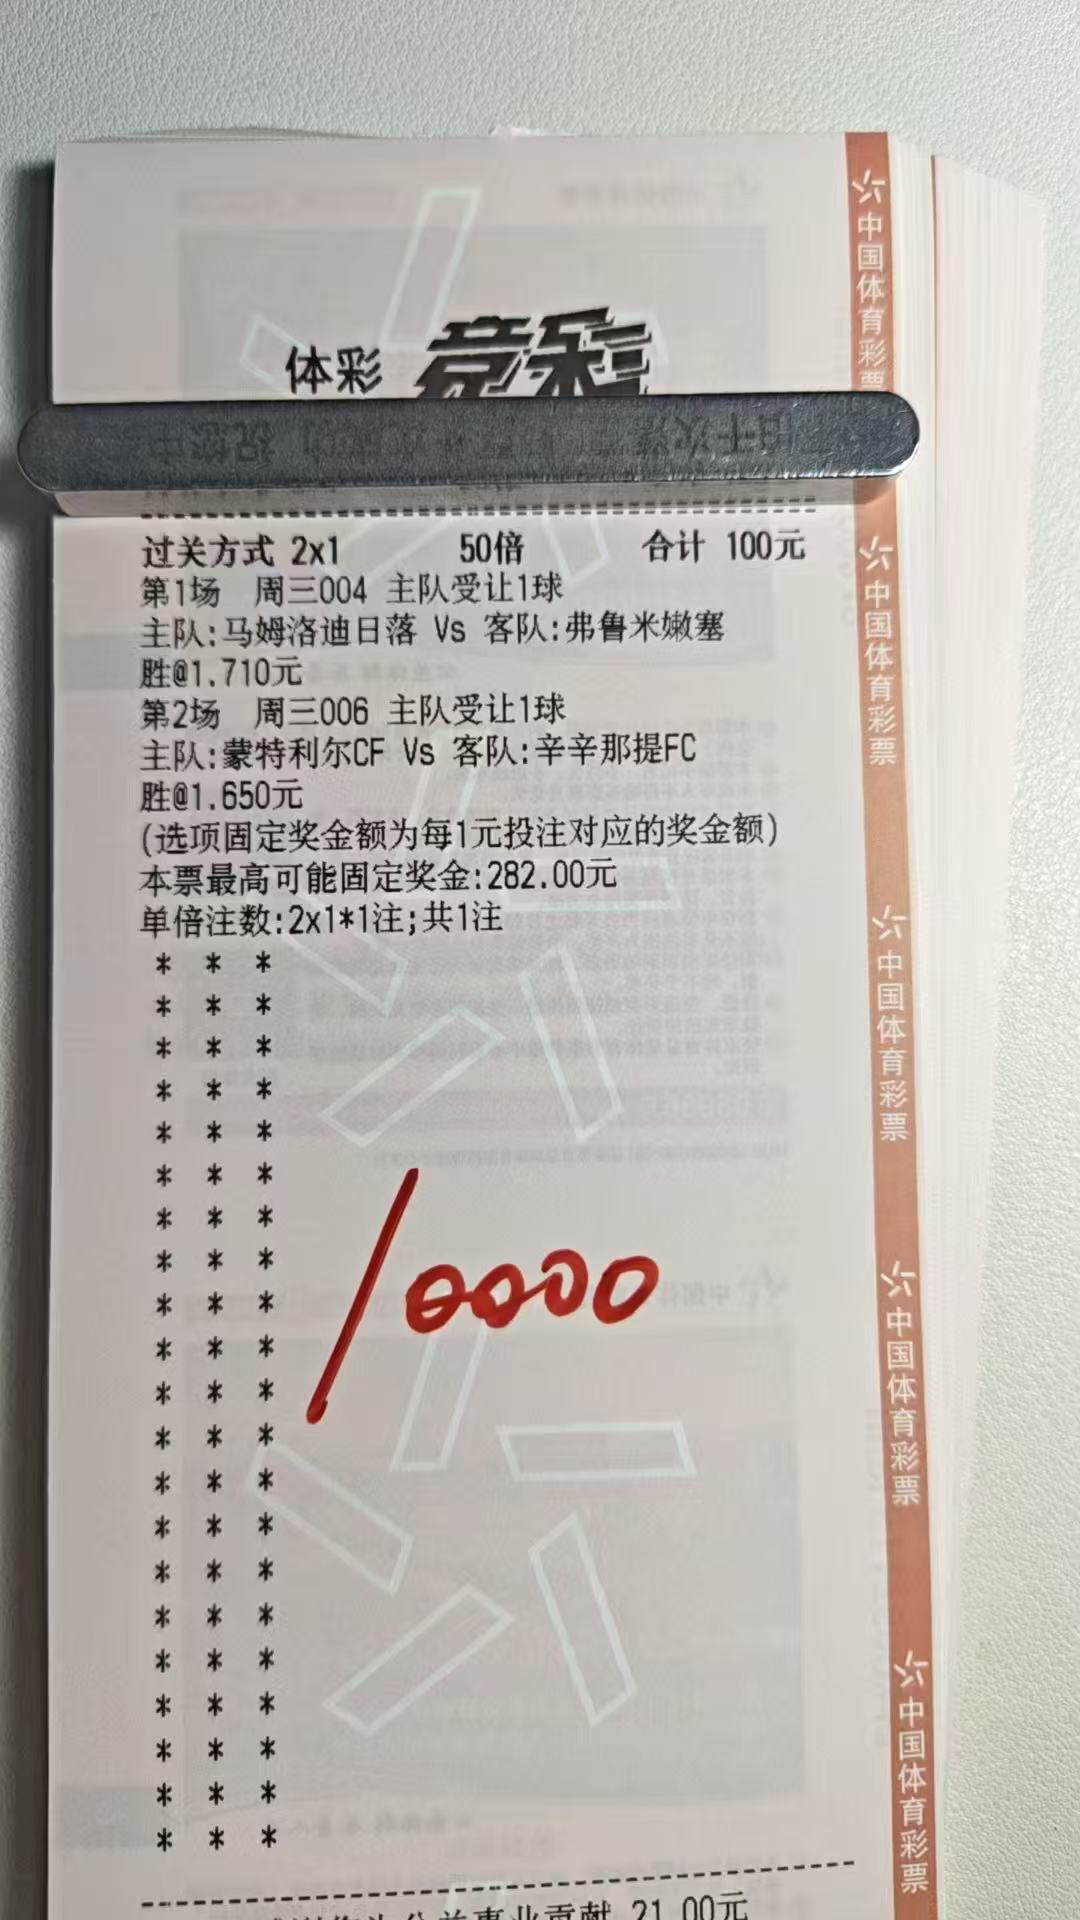 体彩 竞彩
过关方式 2x1 50倍 合计 100元
第1场 周三004 主队受让1球
主队:马姆洛迪日落 Vs 客队:弗鲁米嫩塞
胜@1.710元
第2场 周三006 主队受让1球
主队:蒙特利尔CF Vs 客队:辛辛那提FC
胜@1.650元
(选项固定奖金额为每1元投注对应的奖金额)
本票最高可能固定奖金:282.00元
单倍注数:2x1*1注;共1注
* * *
* * *
* * *
* * *
* * *
* * *
* * *
* * *
* * *
* * *
* * *
* * *
* * *
* * *
* * *
* * *
* * *
* * *
* * *
* * *
* * *
10000
公益事业贡献 21.00元
中国体育彩票
中国体育彩票
中国体育彩票
中国体育彩票
中国体育彩票